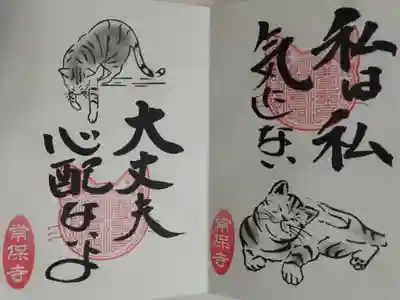 私は私
気にしない
常保寺
大丈夫
心配ないよ
常保寺